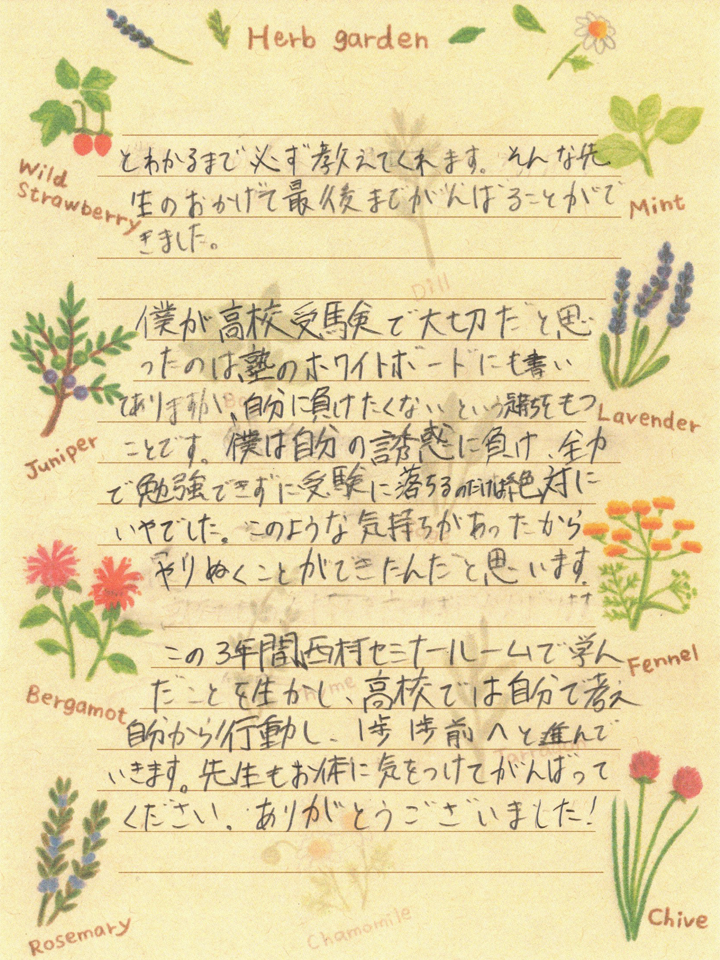 Herb garden
Wild
Strawberry
Mint
とわかるまで必ず教えてくれます。そんな先
生のおかげで最後までがんばることがで
きました。
Dill
僕が高校受験で大切だと思
ったのは、塾のホワイトボードにも書い
てありますが、自分に負けたくないという気持ちをもつ
ことです。僕は自分の誘惑に負け、全力
で勉強できずに受験に落ちるのだけは絶対に
いやでした。このような気持ちがあったから
やりぬくことができたんだと思います。
Juniper
Lavender
Bergamot
Fennel
この3年間西村セミナールームで学ん
だことを生かし、高校では自分で考え
自分から行動し、1歩1歩前へと進んで
いきます。先生もお体に気をつけてがんばって
ください。ありがとうございました!
Rosemary
Chamomile
Chive